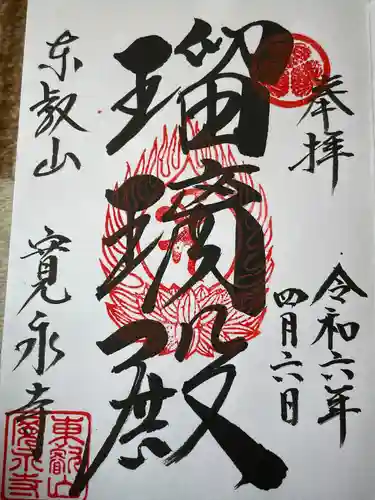 奉拝
令和六年
四月六日
瑠璃殿
東叡山
寛永寺
東叡山
寛永寺